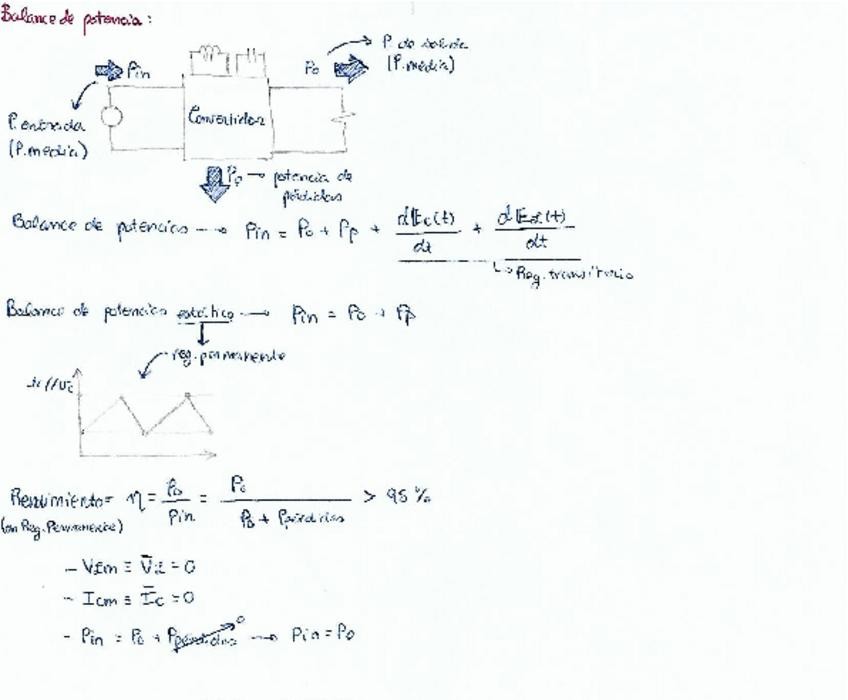 Balance de potencia:
P. de salida
(P.media)
Pin
Po
P. entrada
(P.media)
Convertidor
Pp → potencia de
pérdidas
Balance de potencias → Pin = Po + Pp + dEc(t)/dt + dEL(t)/dt
↳ Reg. transitorio
Balance de potencias estático → Pin = Po + Pp
reg. permanente
iL//Vc
Rendimiento = η = Po/Pin = Po/(Po + Pperdidas) > 95 %
(en Reg. Permanente)
- VLm ≡ V̄L = 0
- Icm ≡ Īc = 0
- Pin = Po + Pperdidas 0 → Pin = Po